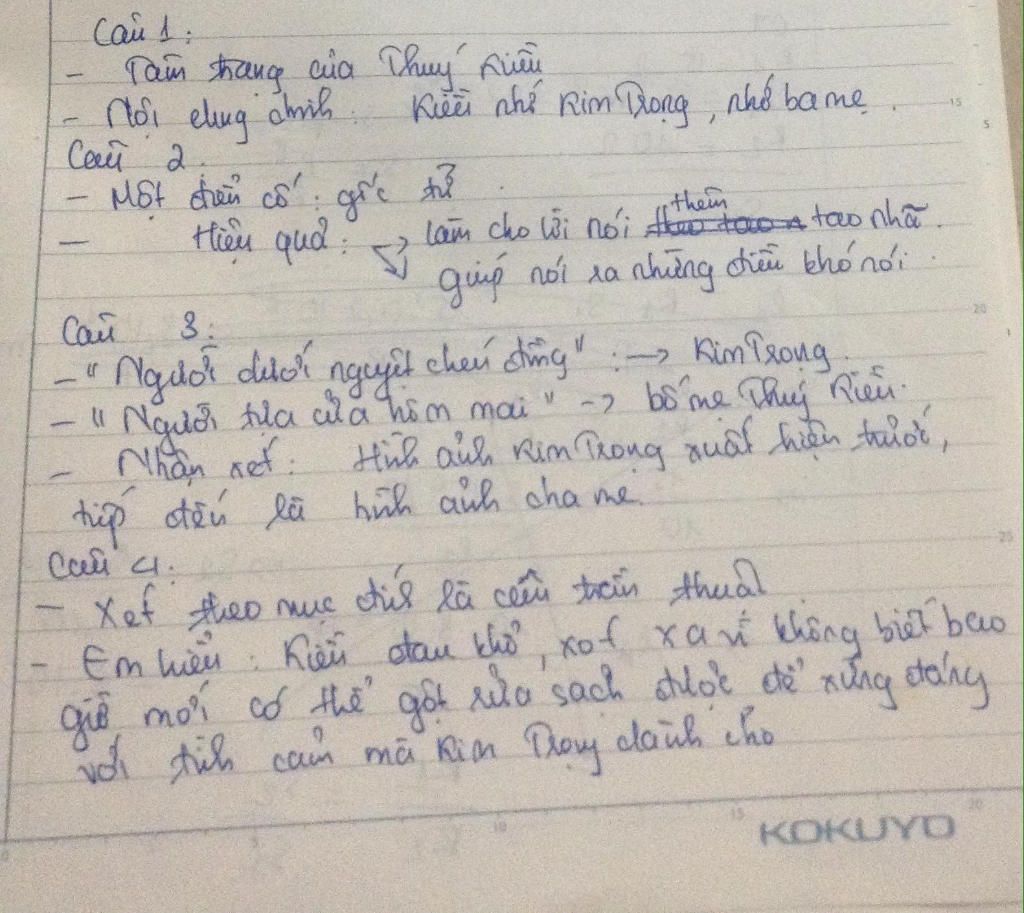 Câu 1:
- Tâm trạng của Thuý Kiều
- Nội dung chính: Kiều nhớ Kim Trọng, nhớ ba mẹ.
Câu 2.
- Một điển cố: gốc tử.
- Hiệu quả: → làm cho lời nói thêm tao nhã.
giúp nói ra những điều khó nói.
Câu 3:
- "Người dưới nguyệt chén đồng": → Kim Trọng.
- "Người tựa cửa hôm mai" -> bố mẹ Thuý Kiều.
- Nhận xét: Hình ảnh Kim Trọng xuất hiện trước,
tiếp đến là hình ảnh cha mẹ.
Câu 4:
- Xét theo mục đích là câu trần thuật
- Em hiểu: Kiều đau khổ, xót xa vì không biết bao
giờ mới có thể gột rửa sạch được để xứng đáng
với tình cảm mà Kim Trọng dành cho
15
5
20
25
5
10
15
20
KOKUYO